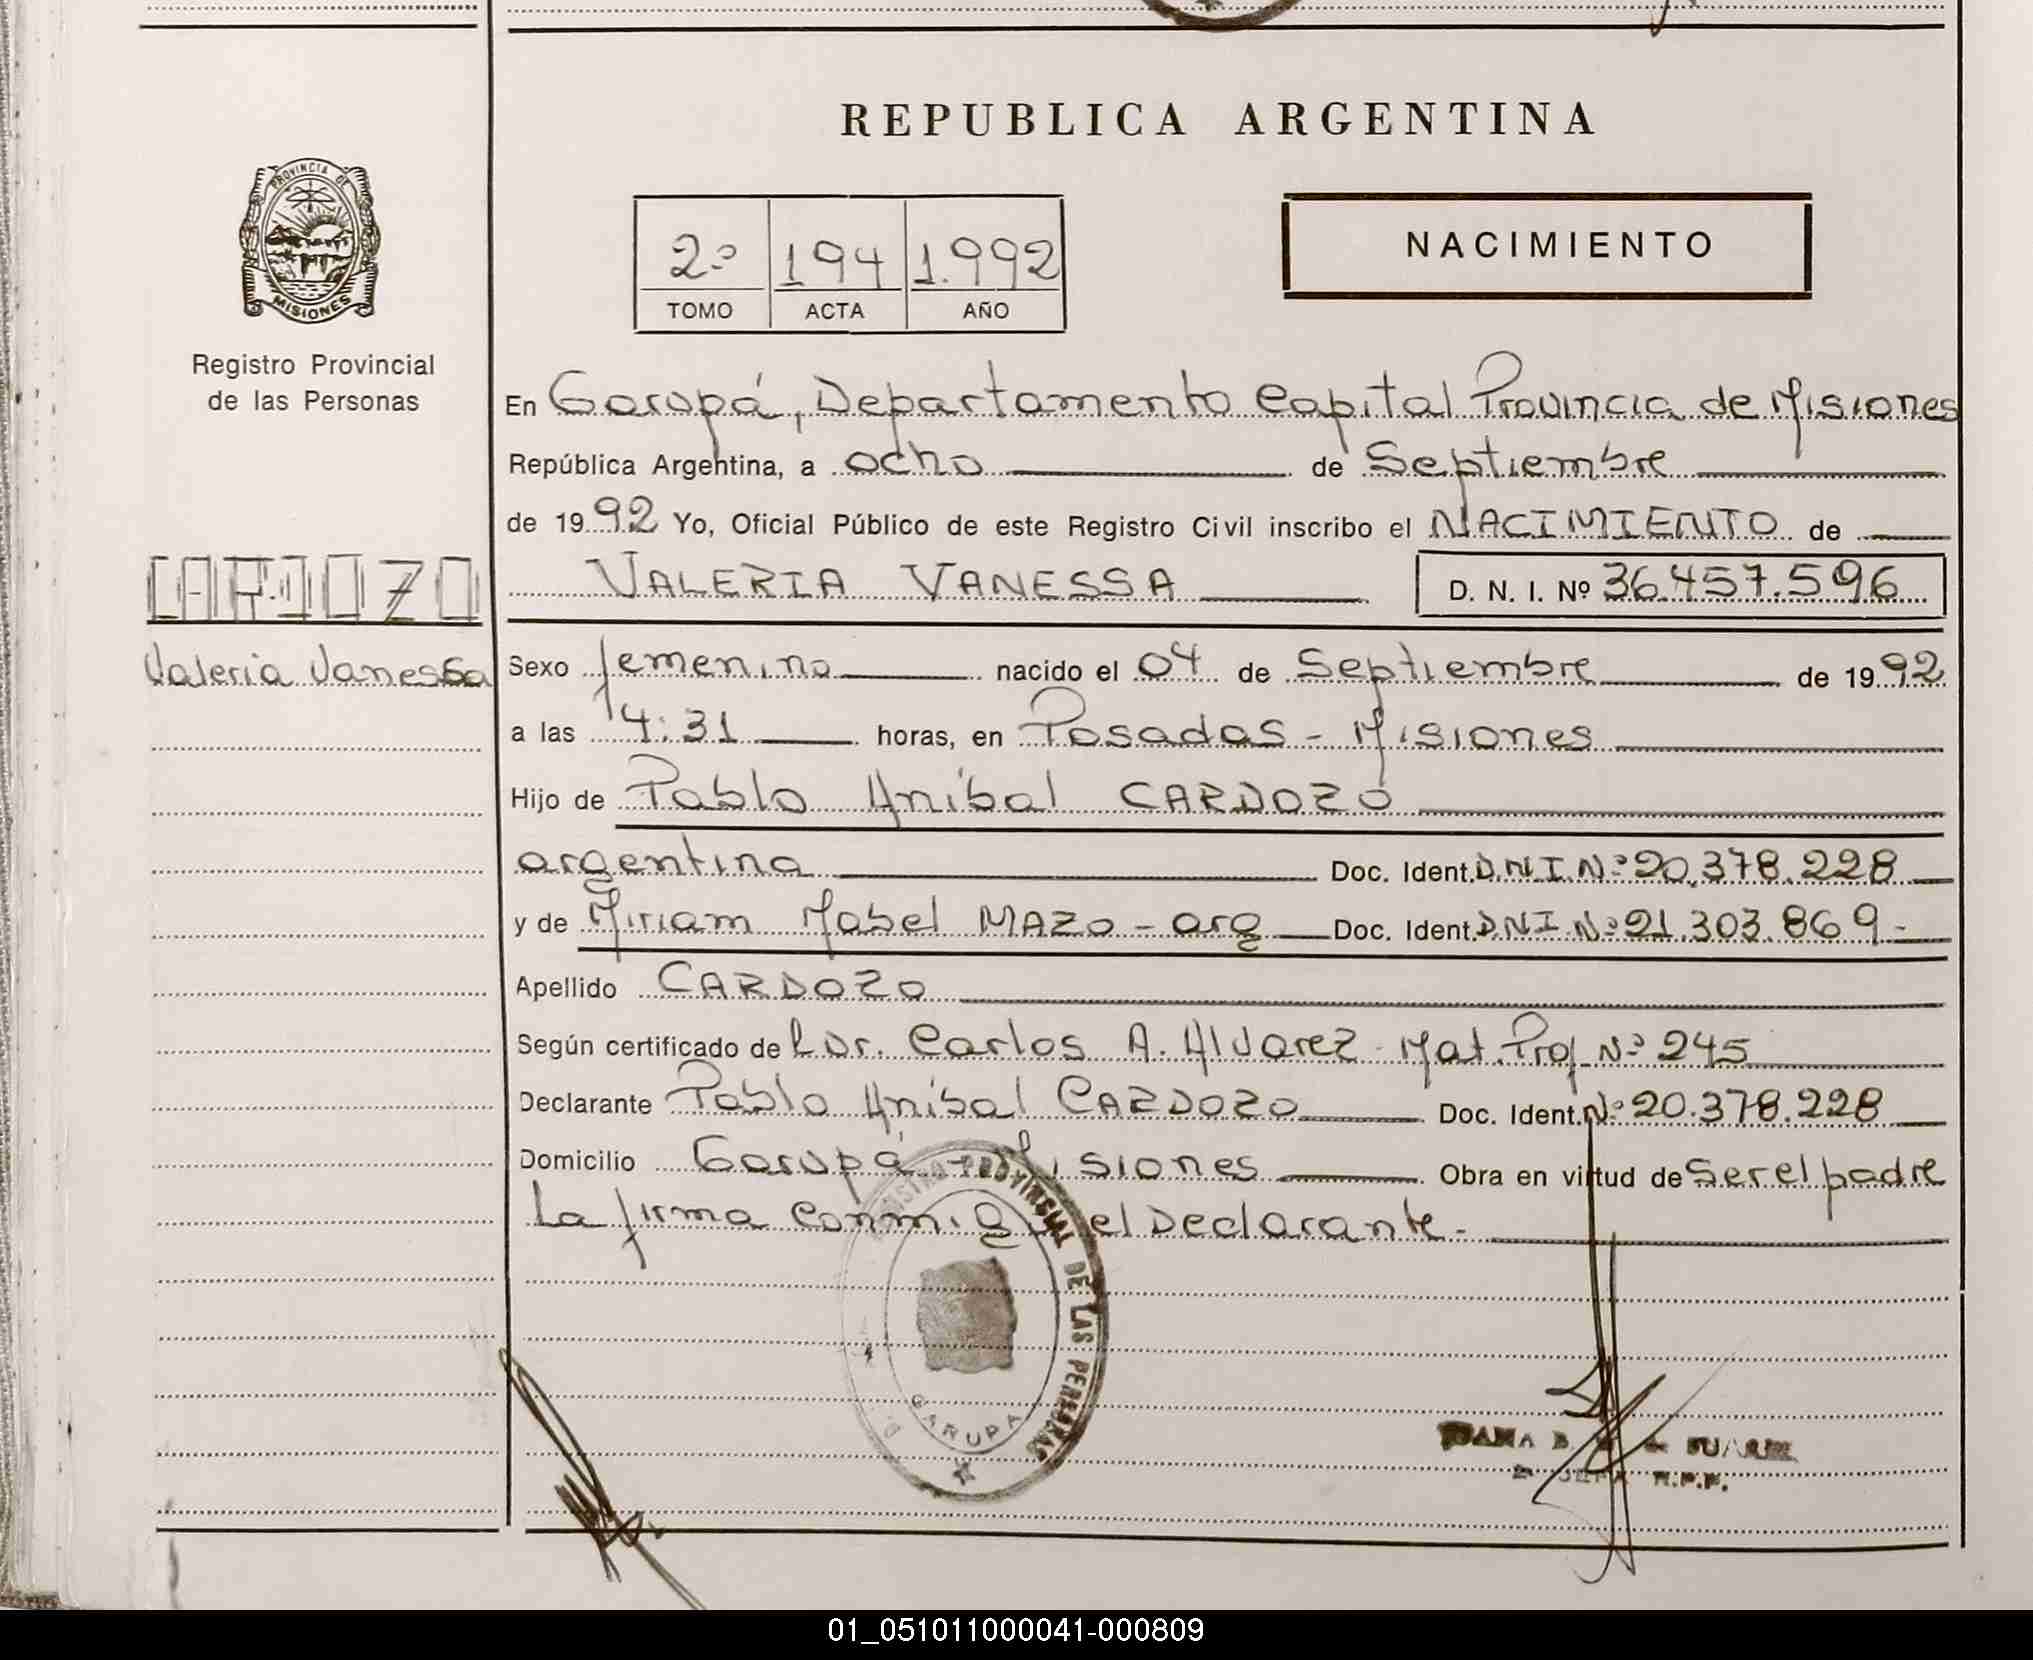 REPUBLICA ARGENTINA
PROVINCIA DE
MISIONES
Registro Provincial
de las Personas
2º 194 1.992
TOMO ACTA AÑO
NACIMIENTO
En Garupá, Departamento Capital Provincia de Misiones
República Argentina, a ocho de Septiembre
de 1992 Yo, Oficial Público de este Registro Civil inscribo el NACIMIENTO de
CARDOZO
VALERIA VANESSA D. N. I. Nº 36.457.596
Valeria Vanessa
Sexo femenino nacido el 04 de Septiembre de 1992
a las 14:31 horas, en Posadas - Misiones
Hijo de Pablo Aníbal CARDOZO
argentina Doc. Ident. D.N.I. Nº 20.378.228
y de Miriam Mabel MAZO - arg Doc. Ident. DNI Nº 21.303.869-
Apellido CARDOZO
Según certificado de Dr. Carlos A. Alvarez - Mat. Prof Nº 245
Declarante Pablo Aníbal CARDOZO Doc. Ident. Nº 20.378.228
Domicilio Garupá - Misiones Obra en virtud de Ser el padre
La firma conmigo el Declarante.
REGISTRO PROVINCIAL DE LAS PERSONAS
GARUPA
SUAREZ
JEFA R.P.P.
01_051011000041-000809